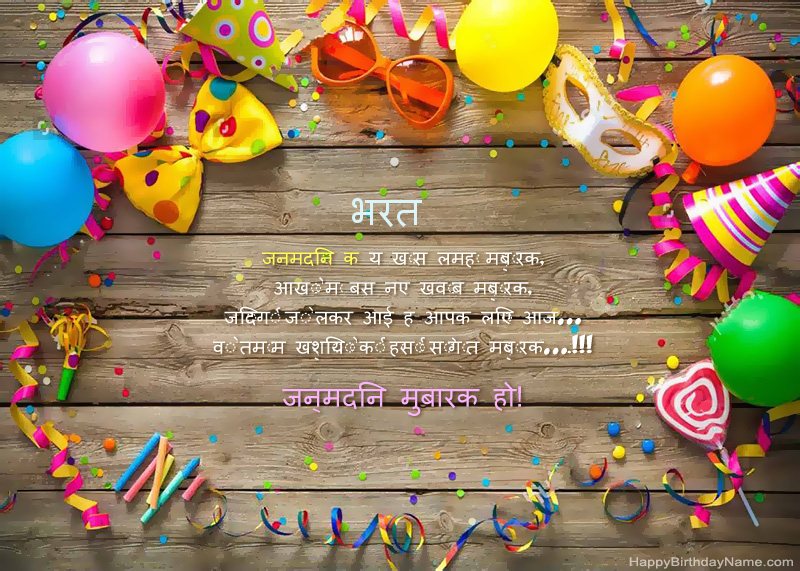 भरत
जनमदिन क य खास लमह मबारक,
आखों म बस नए खवाब मबारक,
जिदगी जो लेकर आई ह आपक लिए आज...
वो तमाम खशियों की हसीं सोगात मबारक...!!!
जन्मदिन मुबारक हो!
HappyBirthdayName.com